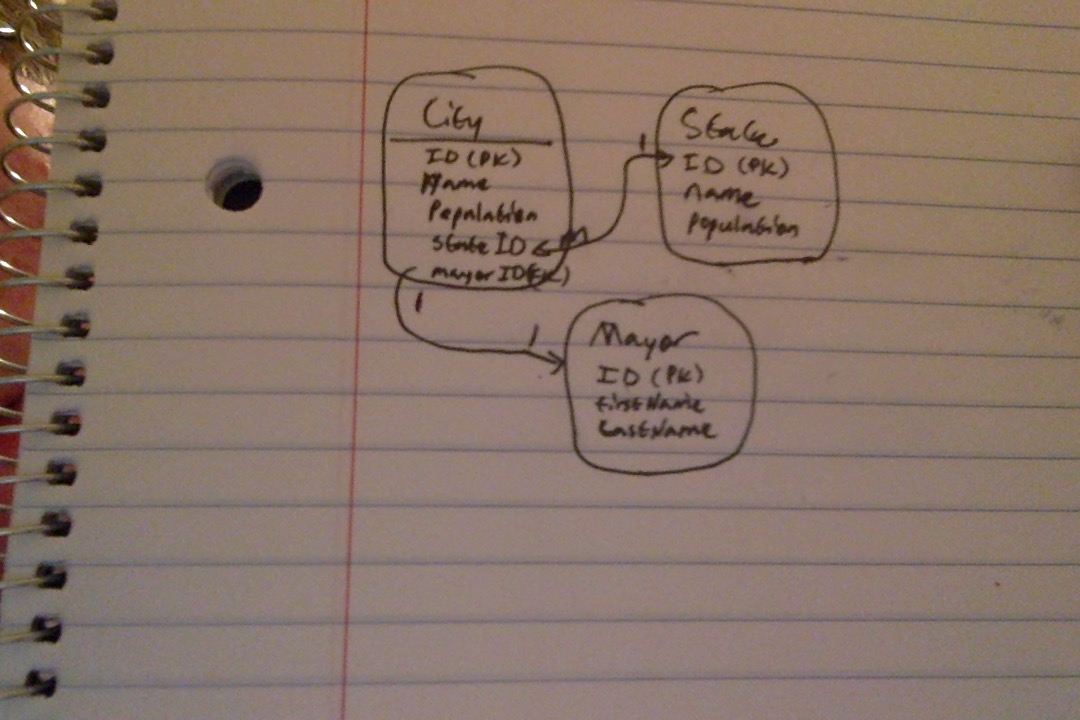 City
ID (PK)
Name
Population
state ID
mayor ID(FK)
1
1
M
1
State
ID (PK)
name
population
Mayor
ID (PK)
firstName
LastName